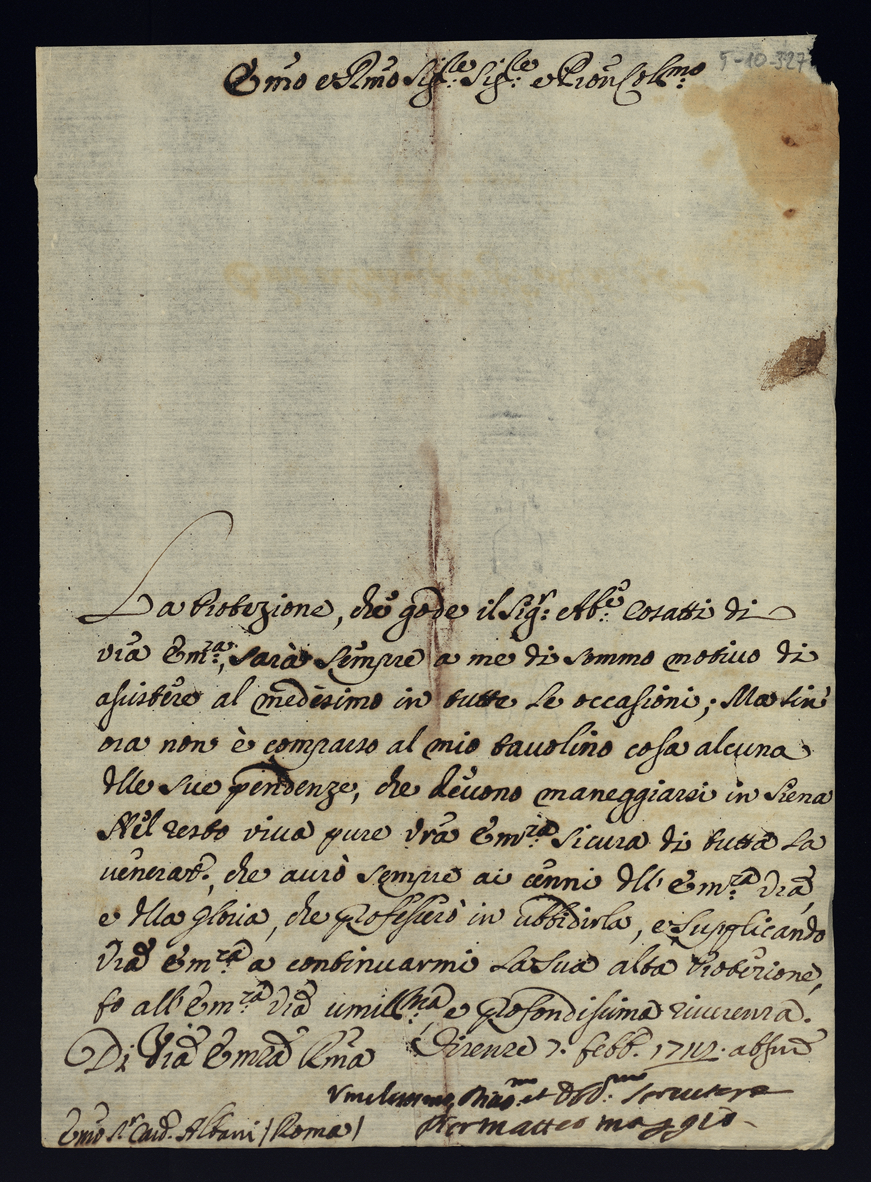 Em̃o e Rm̃o Sig.re Sig.re e Pron Col.mo
5-10-327
La Protezione, che gode il Sig.r Ab.e Cosatti di
vrã Em.za, sarà sempre a me di sommo motivo di
assistere al medesimo in tutte le occasioni; Ma sin
ora non è comparso al mio tavolino cosa alcuna
dlle sue pendenze, che devono maneggiarsi in Siena
Nel resto viva pure Vrã Em.za sicura di tutta la
venerat.e, che avrò sempre ai cenni dll' Em.za Vrã,
e dlla gloria, che professerò in ubbidirla, e supplicando
Vrã Em.za a continuarmi la sua alta Protezione,
fo all' Em.za Vrã umill.ma e profondissima riverenza.
Di Vrã Emzã Rm̃a Firenze 7. febb.
Servitore
Pier Matteo Maggio
Em̃o S.r Card. Albani / Roma /